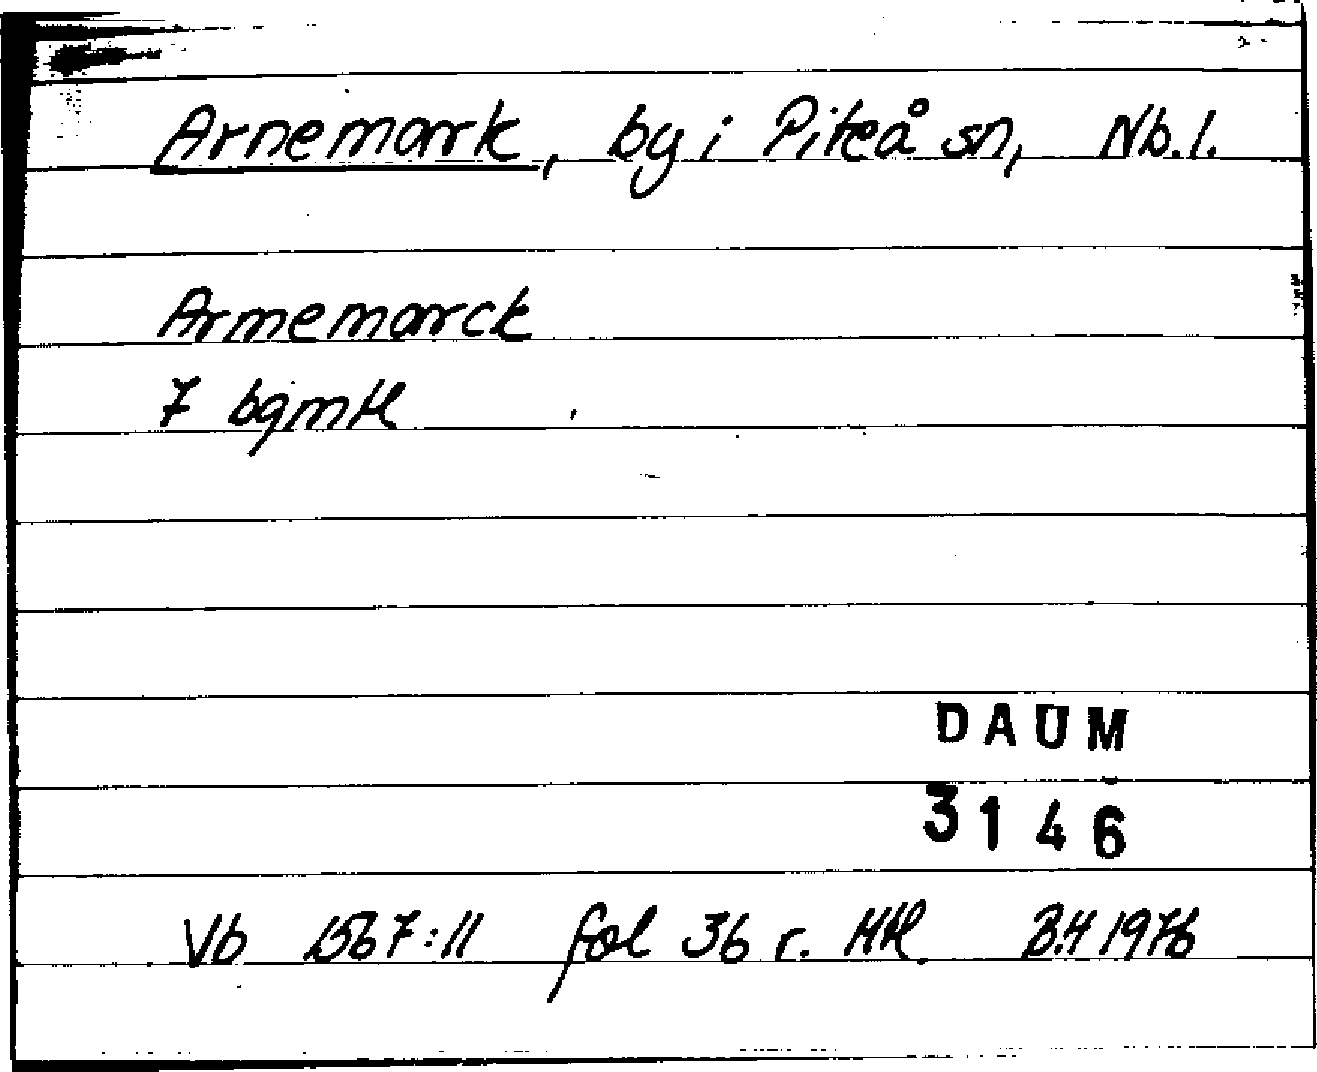 Arnemark, by i Piteå sn, Nb.l.
Armemarck
7 bgmtl
DAUM
3146
Vb 1567:11 fol 36 r. Mtl. B.H 1976